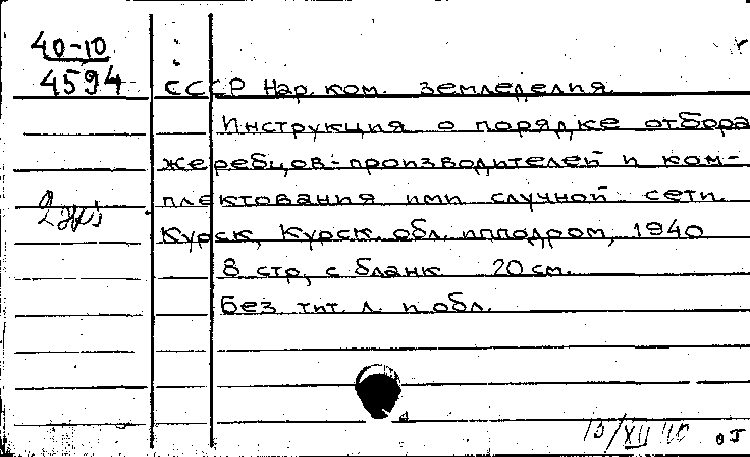 40-10
4594
СССР Нар. ком. земледелия.
Инструкция о порядке отбора
жеребцов-производителей и ком-
плектования ими случной сети.
Курск, Курск. обл. ипподром, 1940
8 стр, с бланк 20 см.
Без тит. л. и обл.
2 экз
15/XII 40